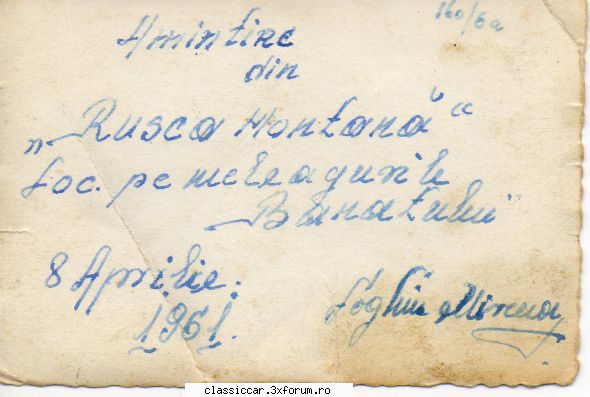 160/6a
Amintire
din
„Rusca Montană"
Loc. pe meleagurile
Banatului
8 Aprilie.
1961.
Mircea
classiccar.3xforum.ro